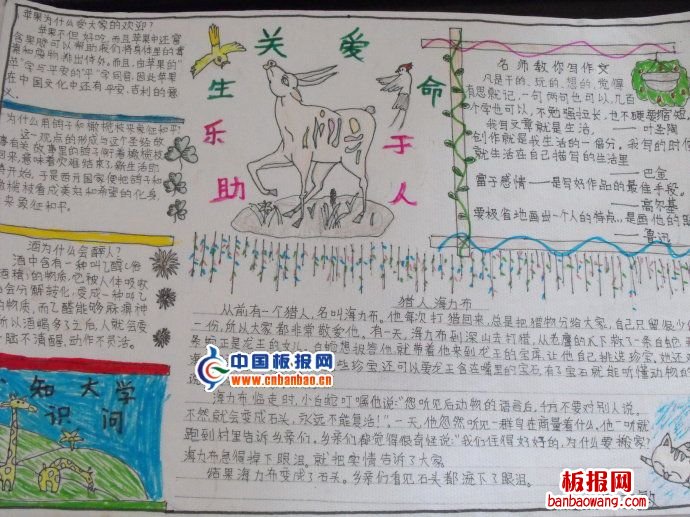 苹果为什么受大家的欢迎?
苹果不但好吃,而且苹果中还富
含果胶可以帮助我们将身体里的毒
素和毒物排出体外。而且,由苹果的
"苹"字与平安的"平"字同音,因此苹果
在中国文化中还有平安.吉利的意
义。
为什么用鸽子和橄榄枝来象征和平?
这一观点的形成与这个圣经故
事有关.故事里的鸽子衔着橄榄枝
回来,意味着灾难结束了,新生活即
将开始,于是西方国家便把鸽子和
橄榄枝看成美好和希望的化身,
来象征和平。
酒为什么会醉人?
酒中含有一种叫乙醇(俗
酒精)的物质,它被人体吸收
会分解转化,变成一种叫乙
的物质,而乙醛能够麻痹神
所以酒喝多了之后,人就会变
脑不清醒,动作不灵活。
小知识
大学问
关爱生命
乐于助人
名师教你写作文
凡是干的、玩的、想的、觉得
有意思就记,一句两句也可以,几百
个字也可以,不勉强拉长,也不硬要缩短,
我写文章就是生活。——叶圣陶
创作就是我生活的一部分。我写的时候
就生活在自己描写的生活里
——巴金
富于感情——是写好作品的最佳手段。
——高尔基
要极省地画出一个人的特点...是画他的眼
鲁迅
猎人海力布
从前有个猎人,名叫海力布。他每次打猎回来,总是把猎物分给大家,自己只留很少
一份,所以大家都非常敬爱他。有一天,海力布到深山去打猎,从老鹰的爪下救了一条白蛇
条蛇正是龙王的女儿,白蛇想报答他,就带着他来到龙王的宝库,让他自己挑选珍宝,她还
些珍宝,还可以要龙王含在嘴里的宝石,有了宝石就能听懂动物的
海力布临走时,小白蛇叮嘱他说:"您听见后动物的语言后,千万不要对别人说,
不然就会变成石头,永远不能复活!"。一天,他忽然听见一群鸟在商量着什么,他一听就
跑到村里告诉乡亲们,乡亲们都觉得很奇怪说:"我们住得好好的,为什么要搬家?"
海力布急得掉下眼泪。就把实情告诉了大家。
结果海力布变成了石头。乡亲们看见石头都流下了眼泪。
中国板报网
www.cnbanbao.cn
板报网
banbaowang.com